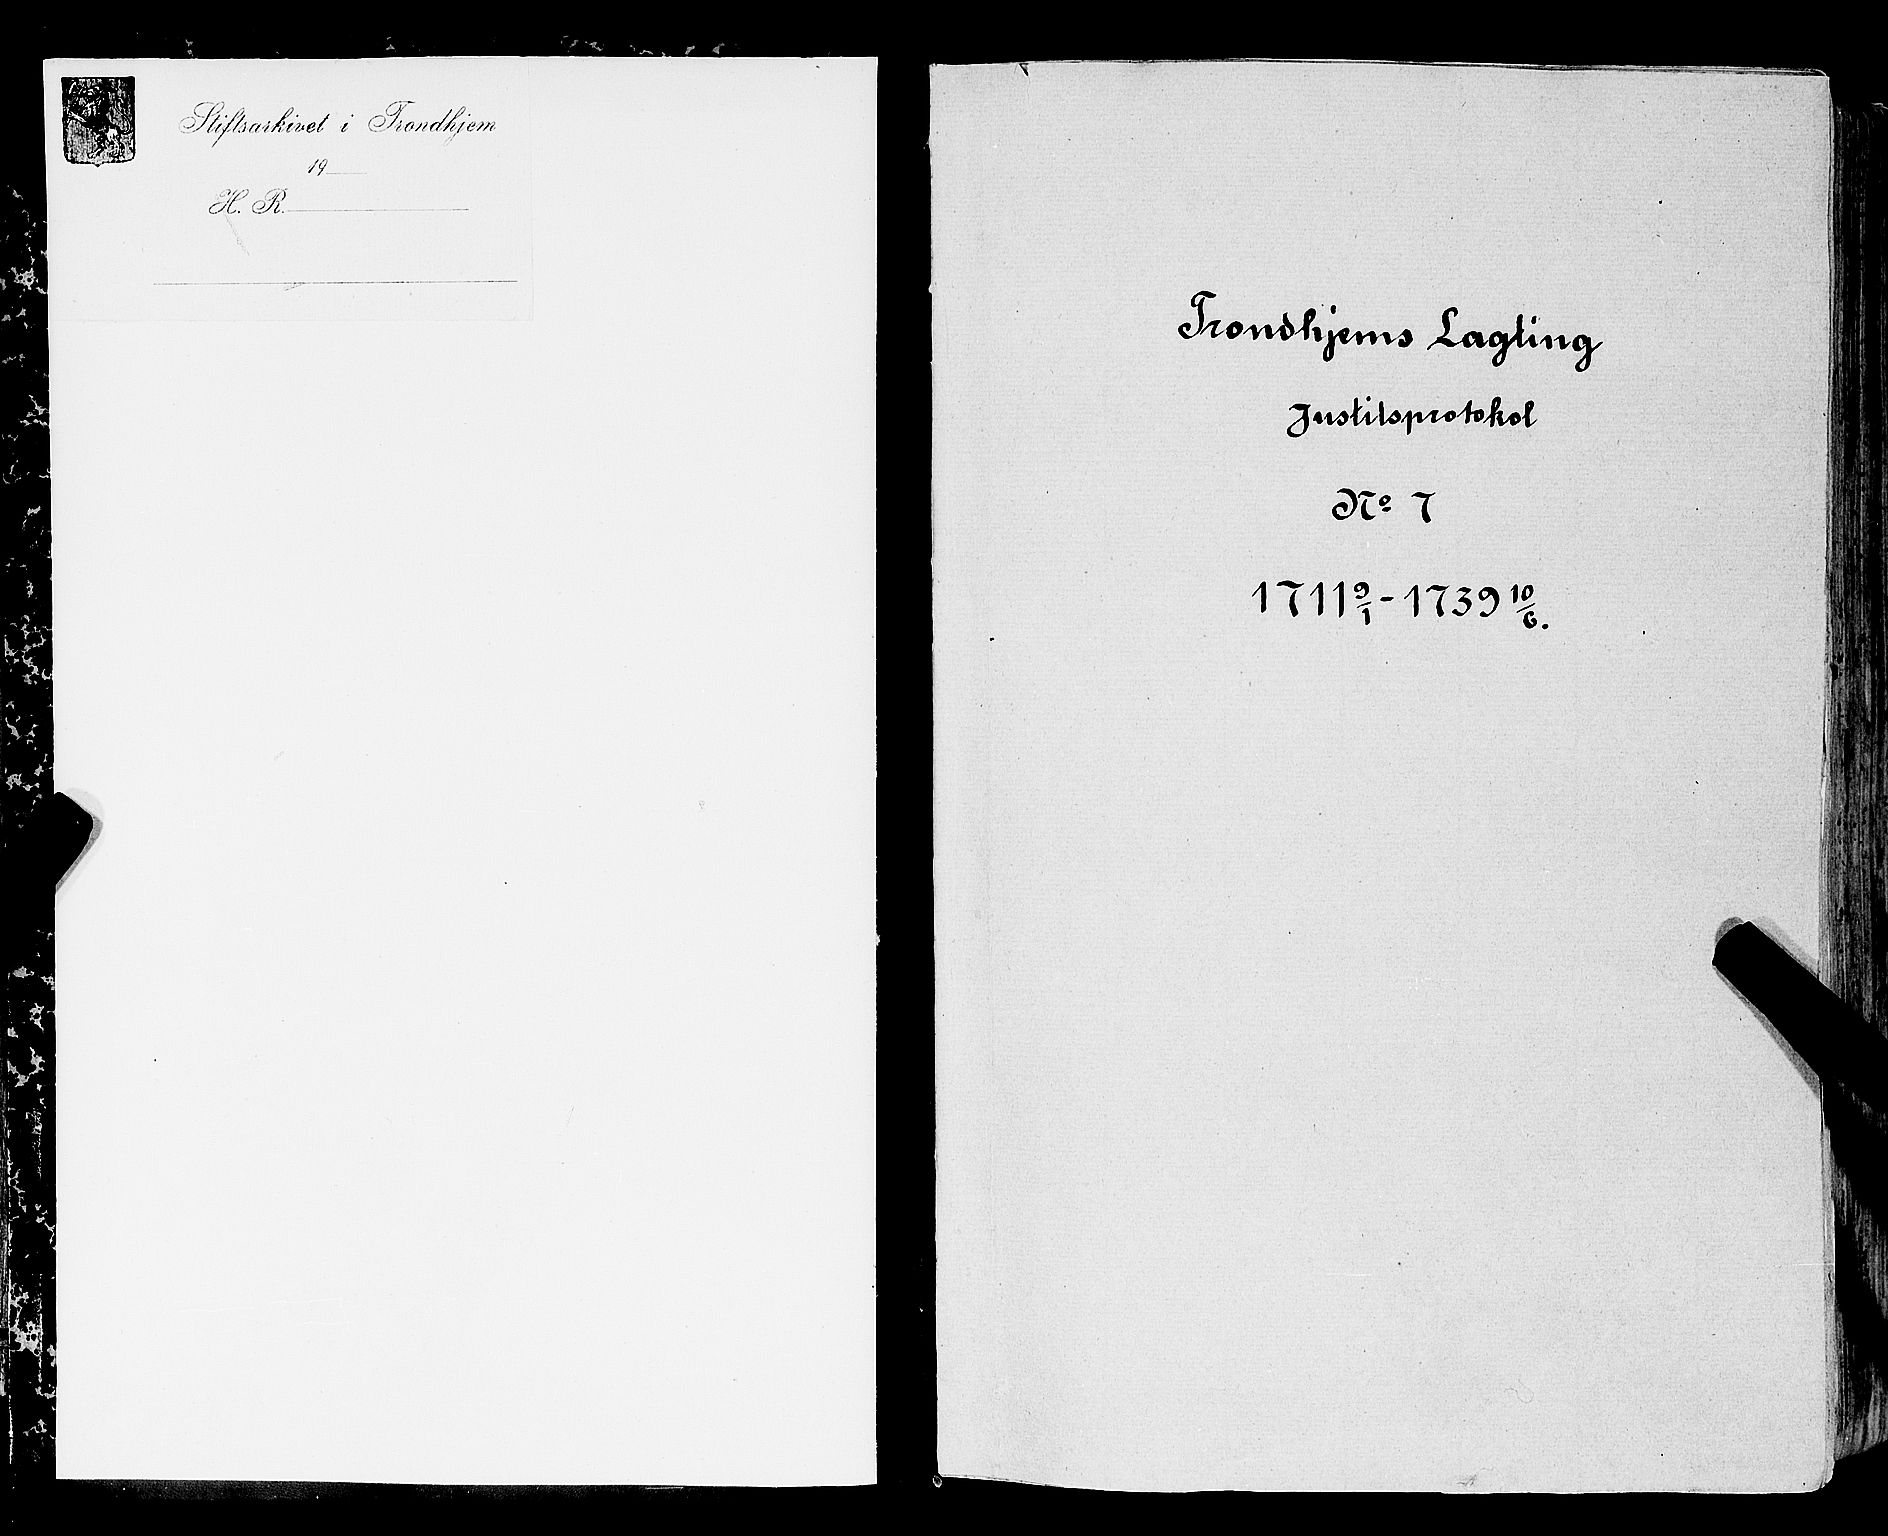 Stiftsarkivet i Trondhjem
19
H. R.
Trondhjems Lagting
Justitsprotokol
Nº 7
1711 9/1 - 1739 10/6.